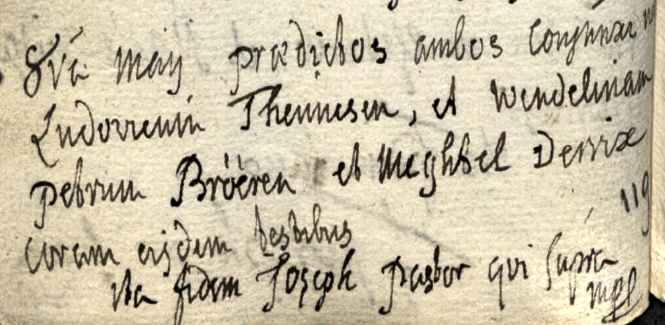 8va maij prædictos ambos Conjunxi
Ludovicum Thennesen, et Wendelinam
petrum Bröeren et Meghtel Derrix
coram eisdem testibus
119
ita fidem Joseph pastor qui supra
mpp